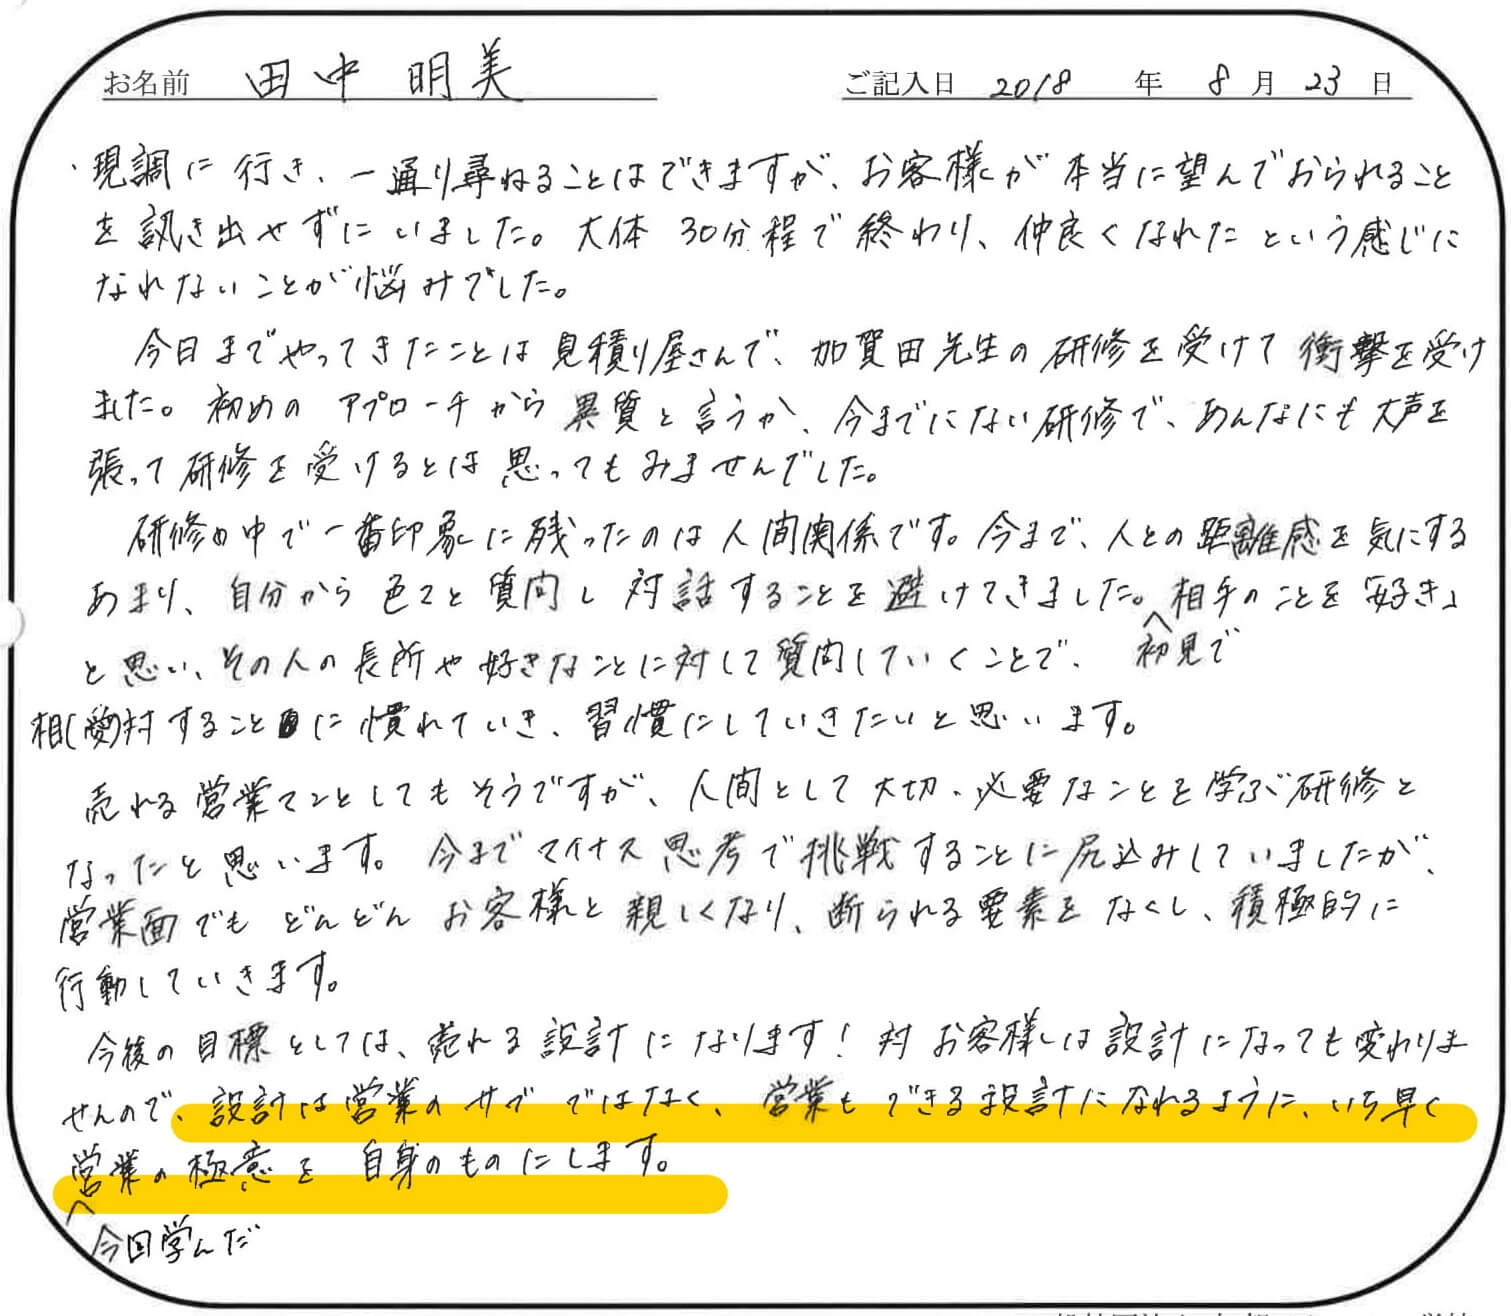 お名前 田中 明美 ご記入日 2018 年 8 月 23 日
・現調に行き、一通り尋ねることはできますが、お客様が本当に望んでおられること
を訊き出せずにいました。大体30分程で終わり、仲良くなれたという感じに
なれないことが悩みでした。
今日までやってきたことは見積り屋さんで、加賀田先生の研修を受けて衝撃を受け
ました。初めのアプローチから異質と言うか、今までにない研修で、あんなにも大声を
張って研修を受けるとは思ってもみませんでした。
研修の中で一番印象に残ったのは人間関係です。今まで、人との距離感を気にする
あまり、自分から色々と質問し対話することを避けてきました。相手のことを「好き」
と思い、その人の長所や好きなことに対して質問していくことで、 初見で
相(愛)対することに慣れていき、習慣にしていきたいと思います。
売れる営業マンとしてもそうですが、人間として大切・必要なことを学ぶ研修と
なったと思います。今までマイナス思考で挑戦することに尻込みしていましたが、
営業面でもどんどんお客様と親しくなり、断られる要素をなくし、積極的に
行動していきます。
今後の目標としては、売れる設計になります!対お客様は設計になっても変わりま
せんので、設計は営業のサブではなく、営業もできる設計になれるように、いち早く
営業の極意を自身のものにします。
今回学んだ